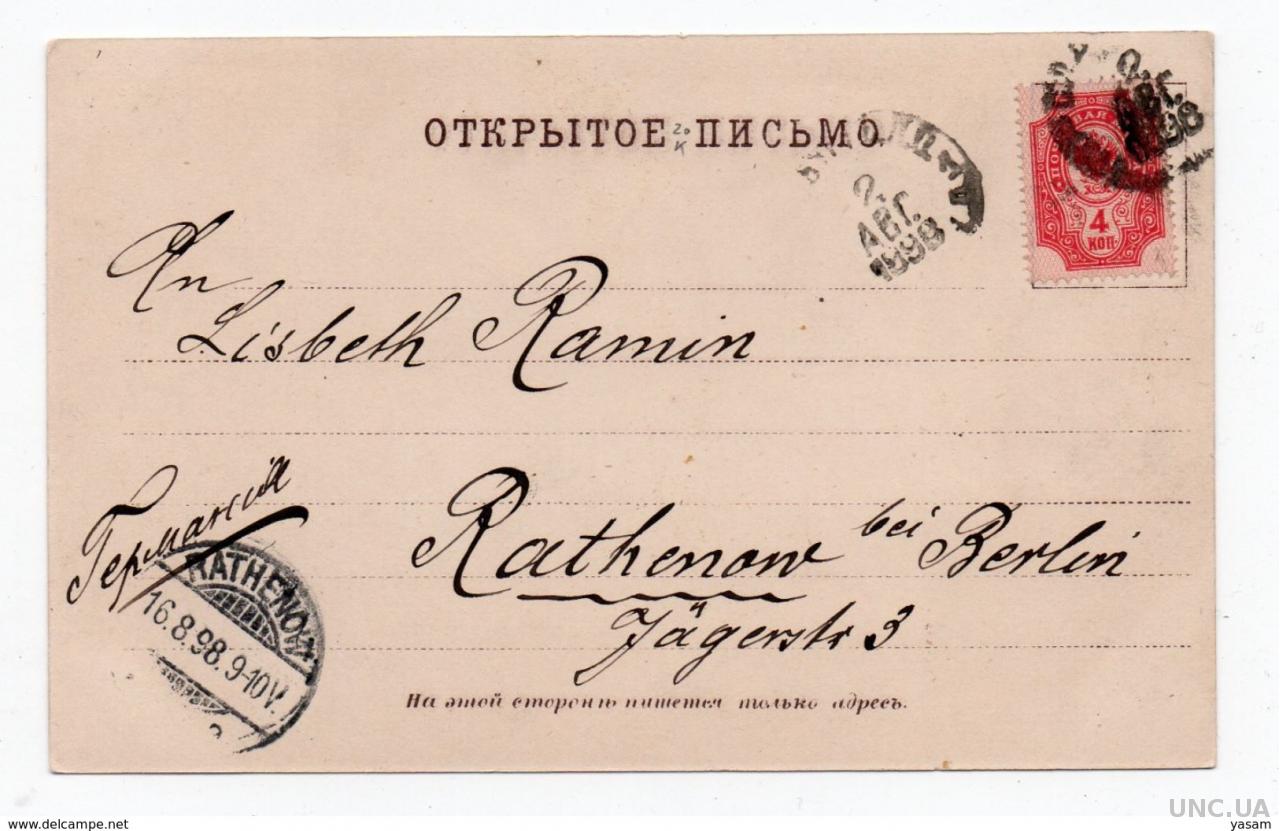 ОТКРЫТОЕ ПИСЬМО
20
К
2.
АВГ.
1898
АВГ.
1898
ПОЧТОВАЯ
4
КОП.
An
Lisbeth Ramin
Германія
Rathenow bei Berlin
Jägerstr 3
RATHENOW
16.8.98.9-10V.
На этой сторонѣ пишется только адресъ.
UNC.UA
www.delcampe.net
yasam